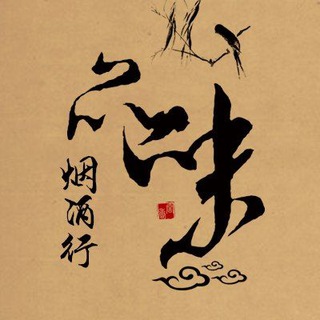 品味
烟酒行